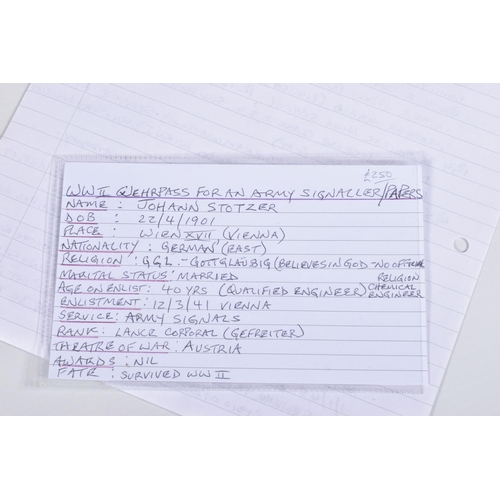 £250
WWII WEHRPASS FOR AN ARMY SIGNALLER/PAPERS
NAME : JOHANN STOTZER
DOB : 22/4/1901
PLACE : WIEN XVII (VIENNA)
NATIONALITY : GERMAN (EAST)
RELIGION : GGL - GOTTGLAUBIG (BELIEVES IN GOD - NO OFFICIAL RELIGION
MARITAL STATUS : MARRIED
AGE ON ENLIST : 40 YRS (QUALIFIED ENGINEER) CHEMICAL ENGINEER
ENLISTMENT : 12/3/41 VIENNA
SERVICE : ARMY SIGNALS
RANK : LANCE CORPORAL (GEFREITER)
THEATRE OF WAR : AUSTRIA
AWARDS : NIL
FATE : SURVIVED WWII